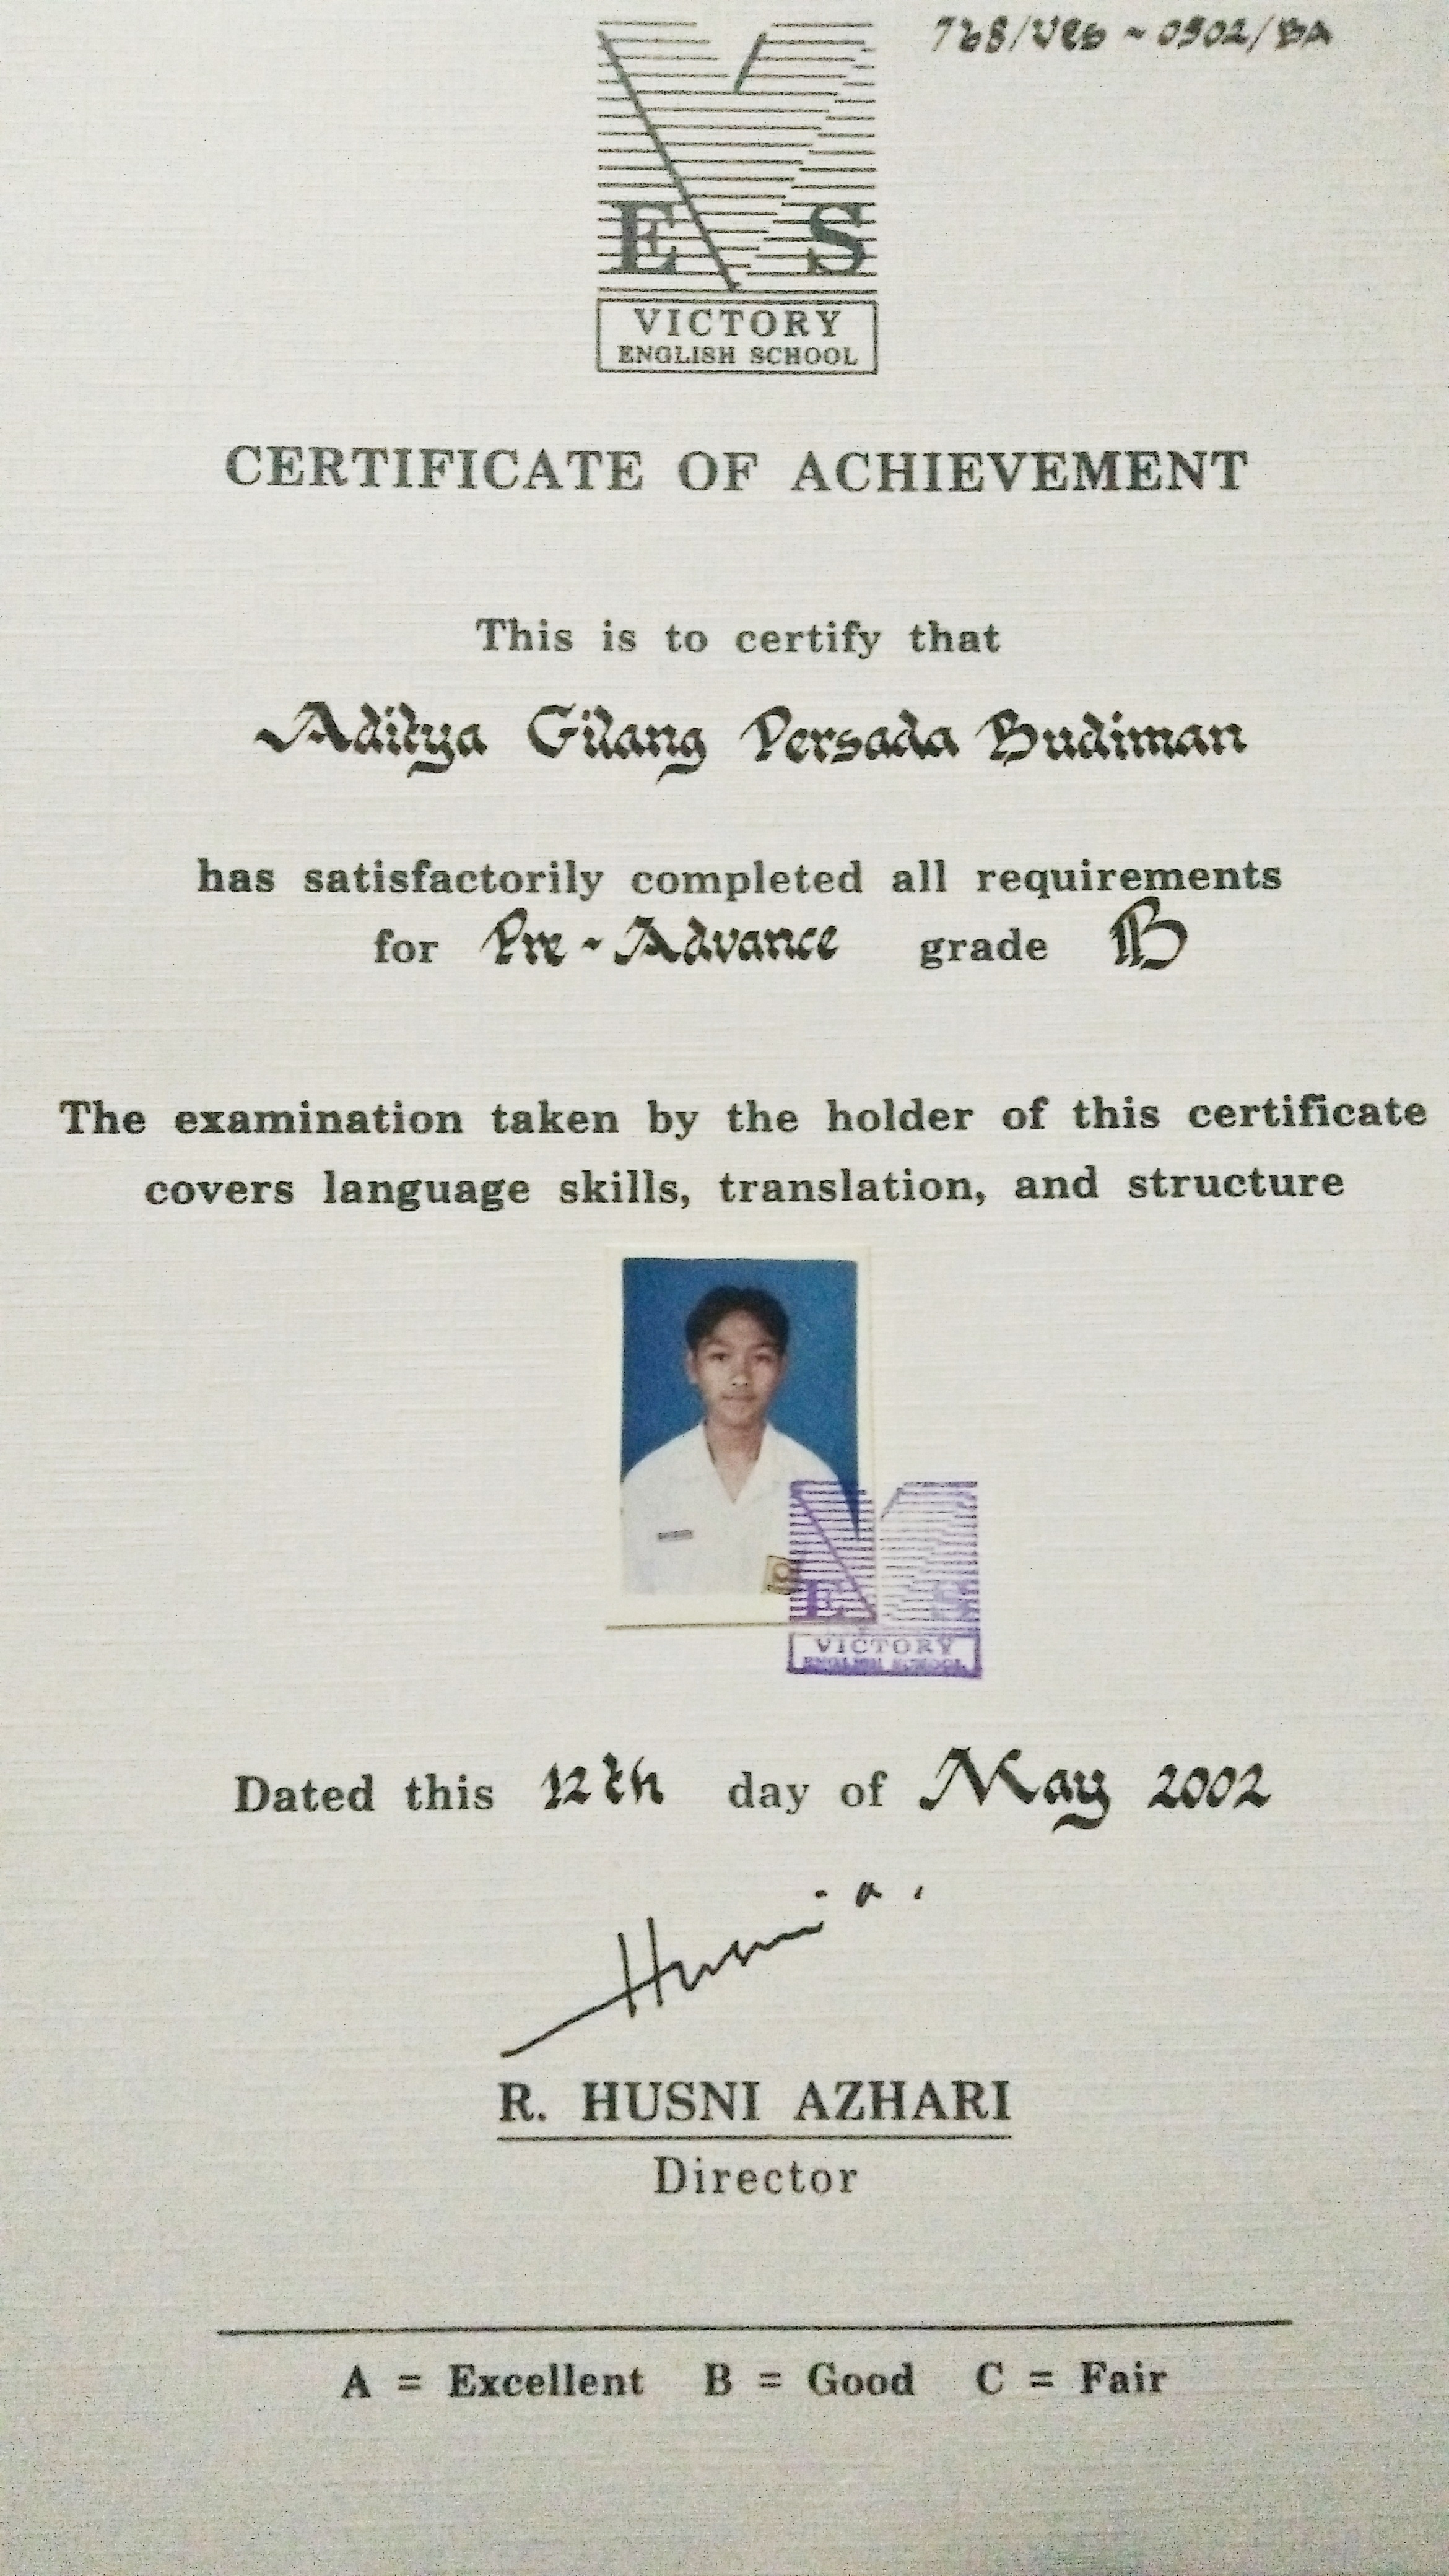 768/VES ~ 0502/BA
E S
VICTORY
ENGLISH SCHOOL
CERTIFICATE OF ACHIEVEMENT
This is to certify that
Aditya Gilang Persada Budiman
has satisfactorily completed all requirements
for Pre-Advance grade B
The examination taken by the holder of this certificate
covers language skills, translation, and structure
E S
VICTORY
ENGLISH SCHOOL
Dated this 12th day of May 2002
Husni a.
R. HUSNI AZHARI
Director
A = Excellent B = Good C = Fair